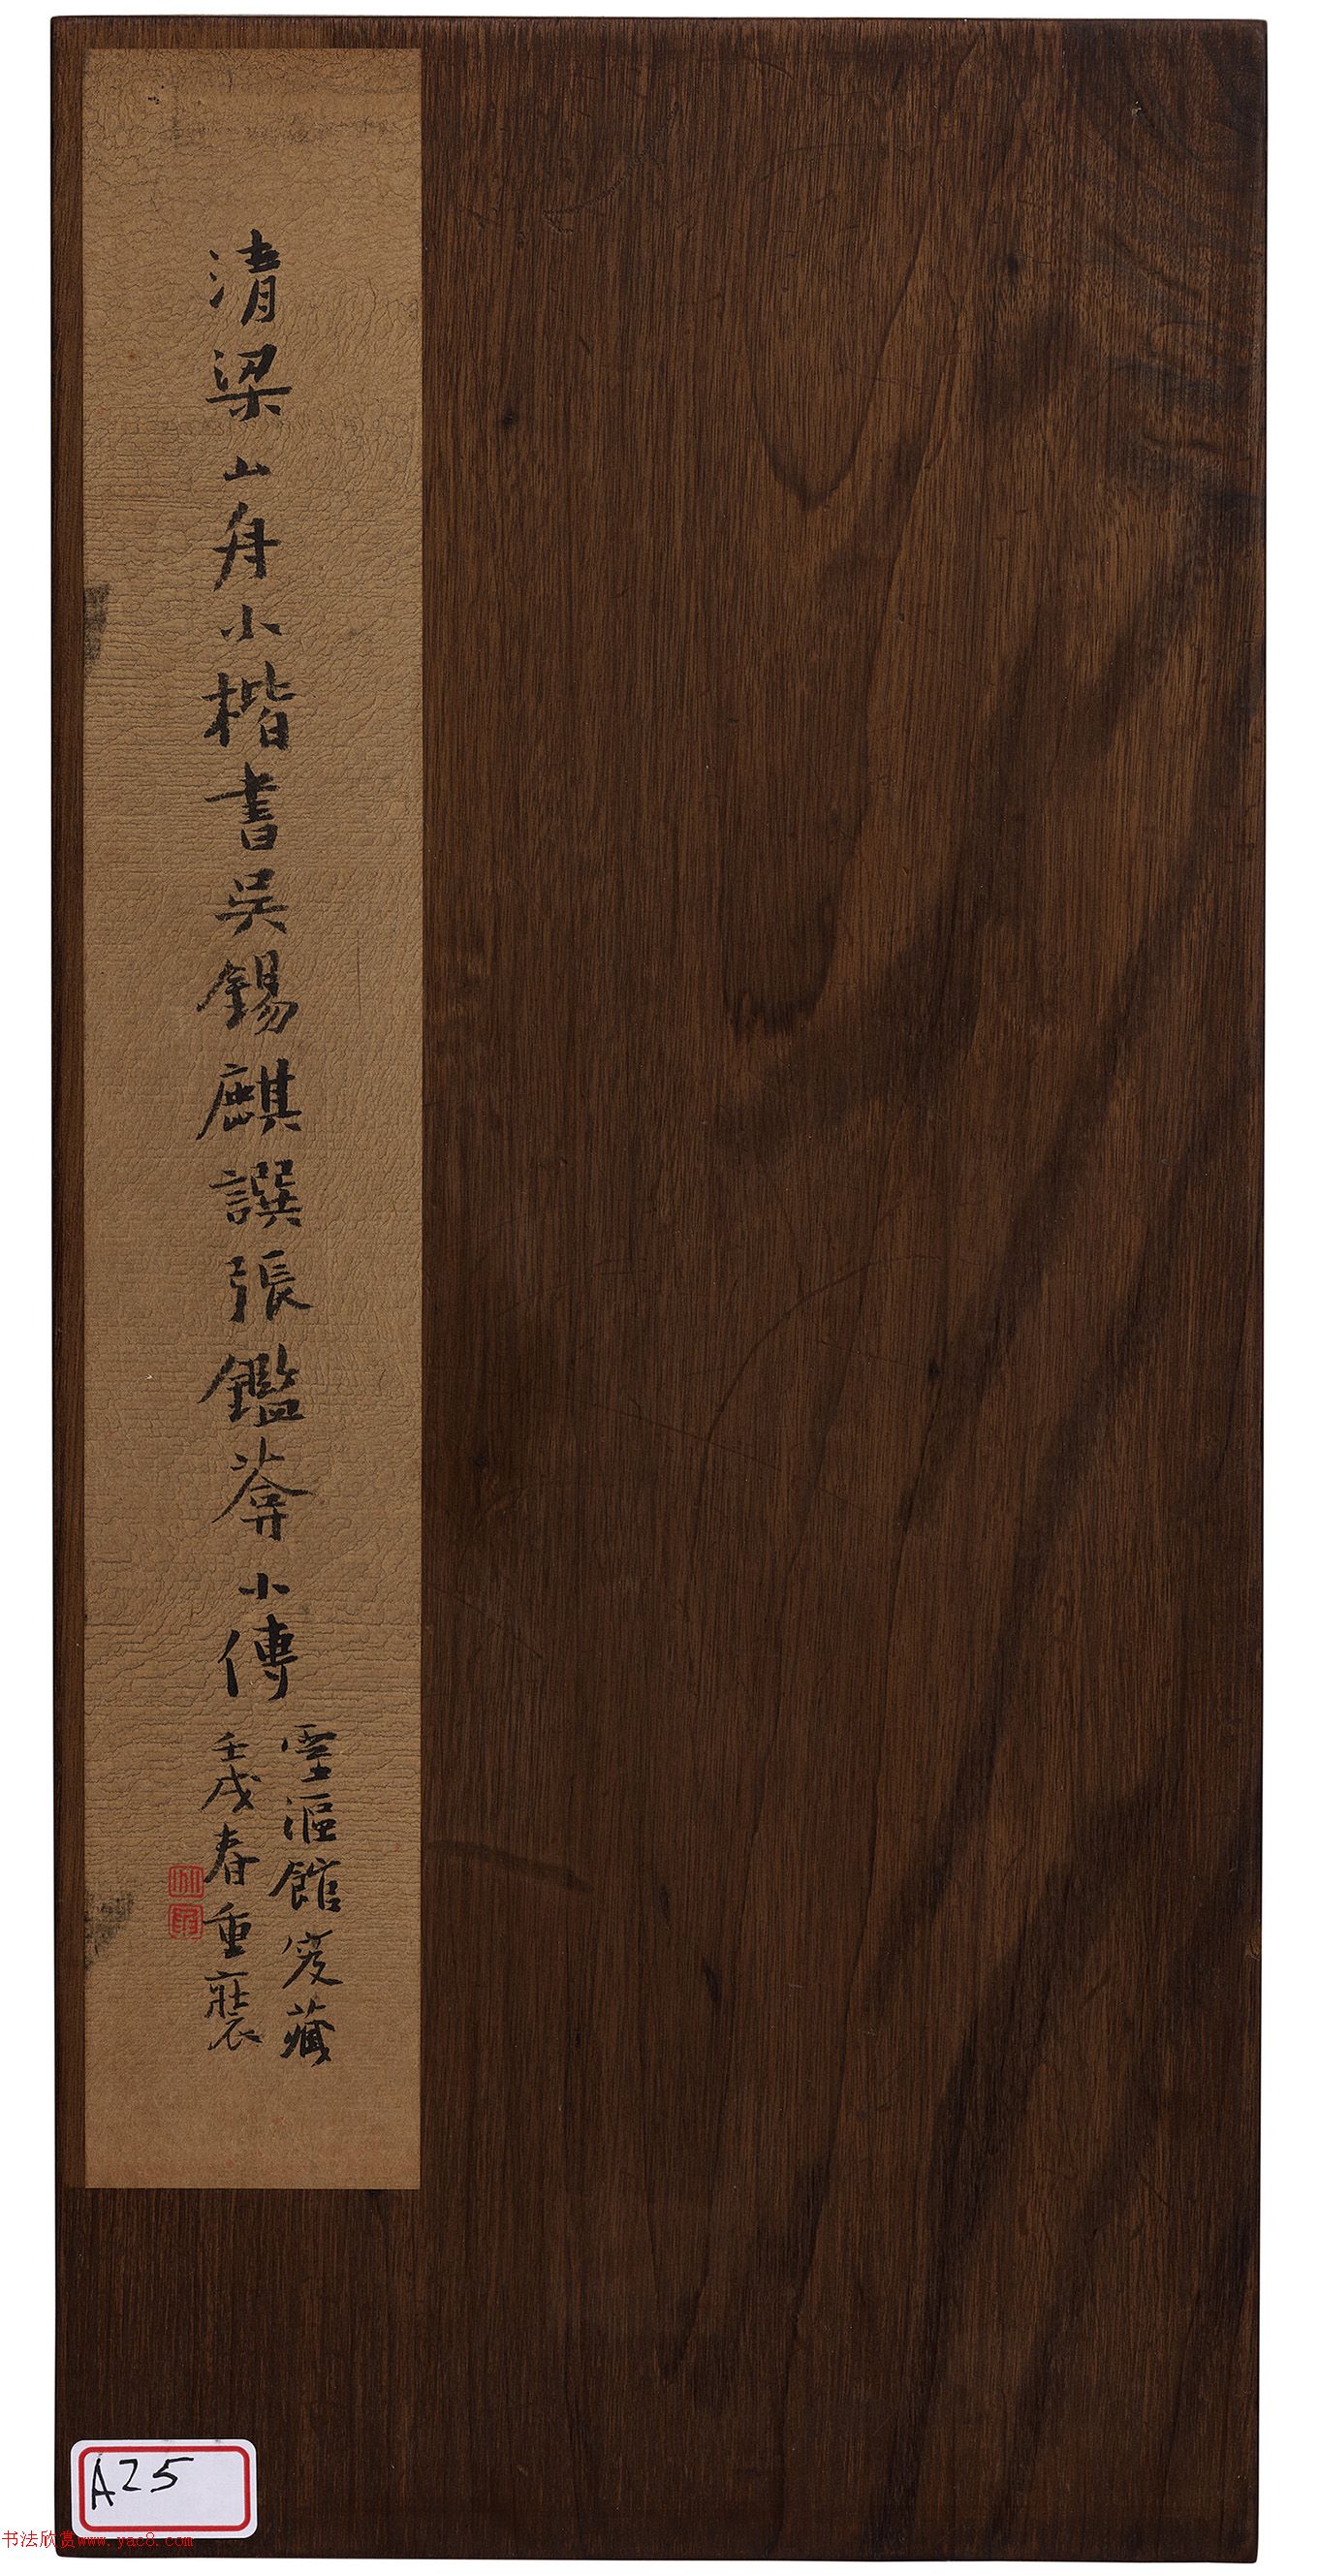 清梁山舟小楷書吳錫麒譔張鑑葊小傳
雪漚館
藏
壬戌春重裝
A25
书法欣赏www.yac8.com